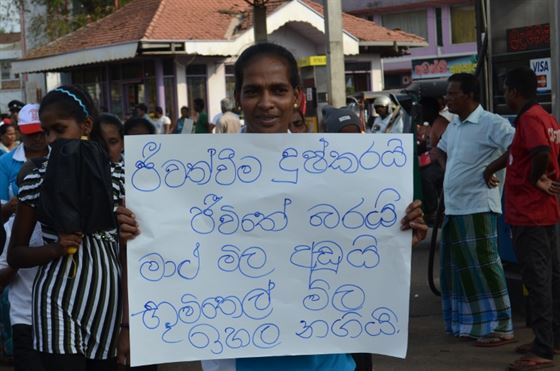 ජීවත්වීම දුෂ්කරයි
ජීවිතේ බරයි
මාලු මිල අඩුයි
භූමිතෙල් මිල
ඉහල නගියි.
VISA